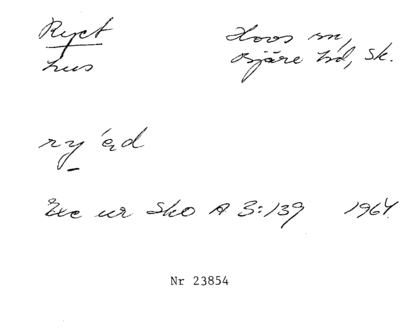 Ryet Hovs sn,
hus Bjäre hd, Sk.
ry ́ed
Exc ur Sko A 3:139 1964.
Nr 23854